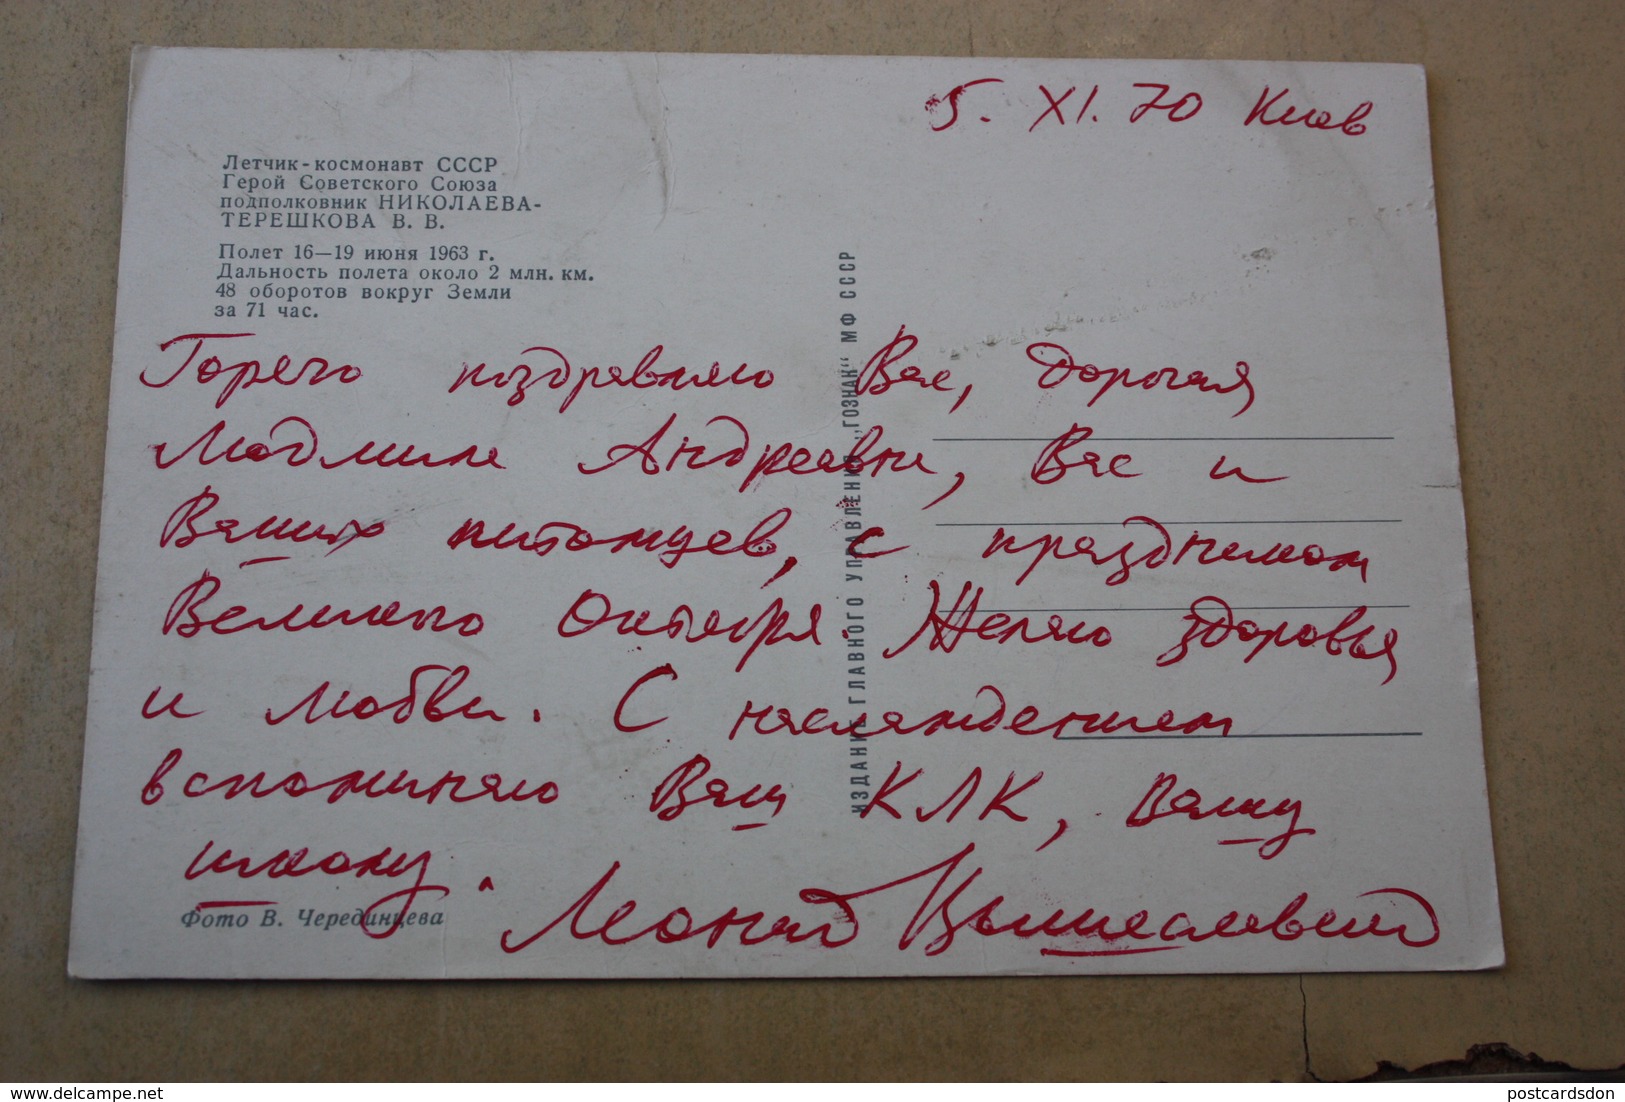 5. XI. 70 Киев
Летчик-космонавт СССР
Герой Советского Союза
подполковник НИКОЛАЕВА-
ТЕРЕШКОВА В. В.
Полет 16—19 июня 1963 г.
Дальность полета около 2 млн. км.
48 оборотов вокруг Земли
за 71 час.
Горячо поздравляю Вас, дорогая
Людмила Андреевна, Вас и
Ваших питомцев, с праздником
Великого Октября. Желаю здоровья
и любви. С наслаждением
вспоминаю Ваш КЛК, Вашу
школу.
Леонид
Фото В. Черединцева
ИЗДАНИЕ ГЛАВНОГО УПРАВЛЕНИЯ „ГОЗНАК“ МФ СССР
postcardsdon